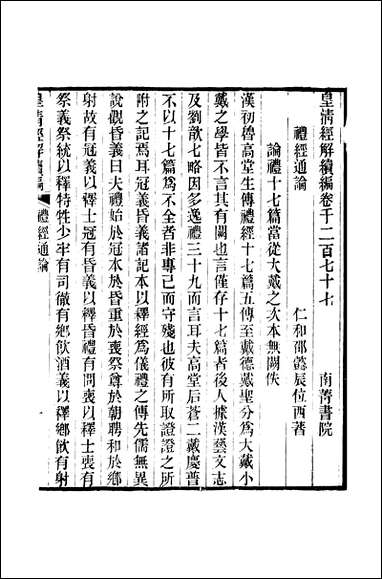 皇清經解續編卷千二百七十七
南菁書院
禮經通論
仁和邵懿辰位西著
論禮十七篇當從大戴之次本無闕佚
漢初魯高堂生傳禮經十七篇五傳至戴德戴聖分為大戴小
戴之學皆不言其有闕也言僅存十七篇者後人據漢藝文志
及劉歆七略因多逸禮三十九而言耳夫高堂后蒼二戴慶普
不以十七篇爲不全者非專己而守殘也彼有所取證證之所
附之記焉耳冠義昏義諸記本以釋經爲儀禮之傳先儒無異
說觀昏義曰夫禮始於冠本於昏重於喪祭尊於朝聘和於鄉
射故有冠義以釋士冠有昏義以釋昏禮有問喪以釋士喪有
祭義祭統以釋特牲少牢有司徹有鄉飲酒義以釋鄉飲有射
皇清經解續編
禮經通論
一